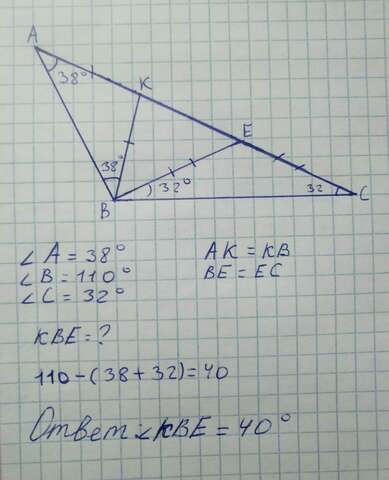 A
38°
K
E
38°
B
32°
32
C
∠A = 38° AK = KB
∠B = 110° BE = EC
∠C = 32°
KBE = ?
110-(38+32)=40
Ответ ∠KBE = 40°